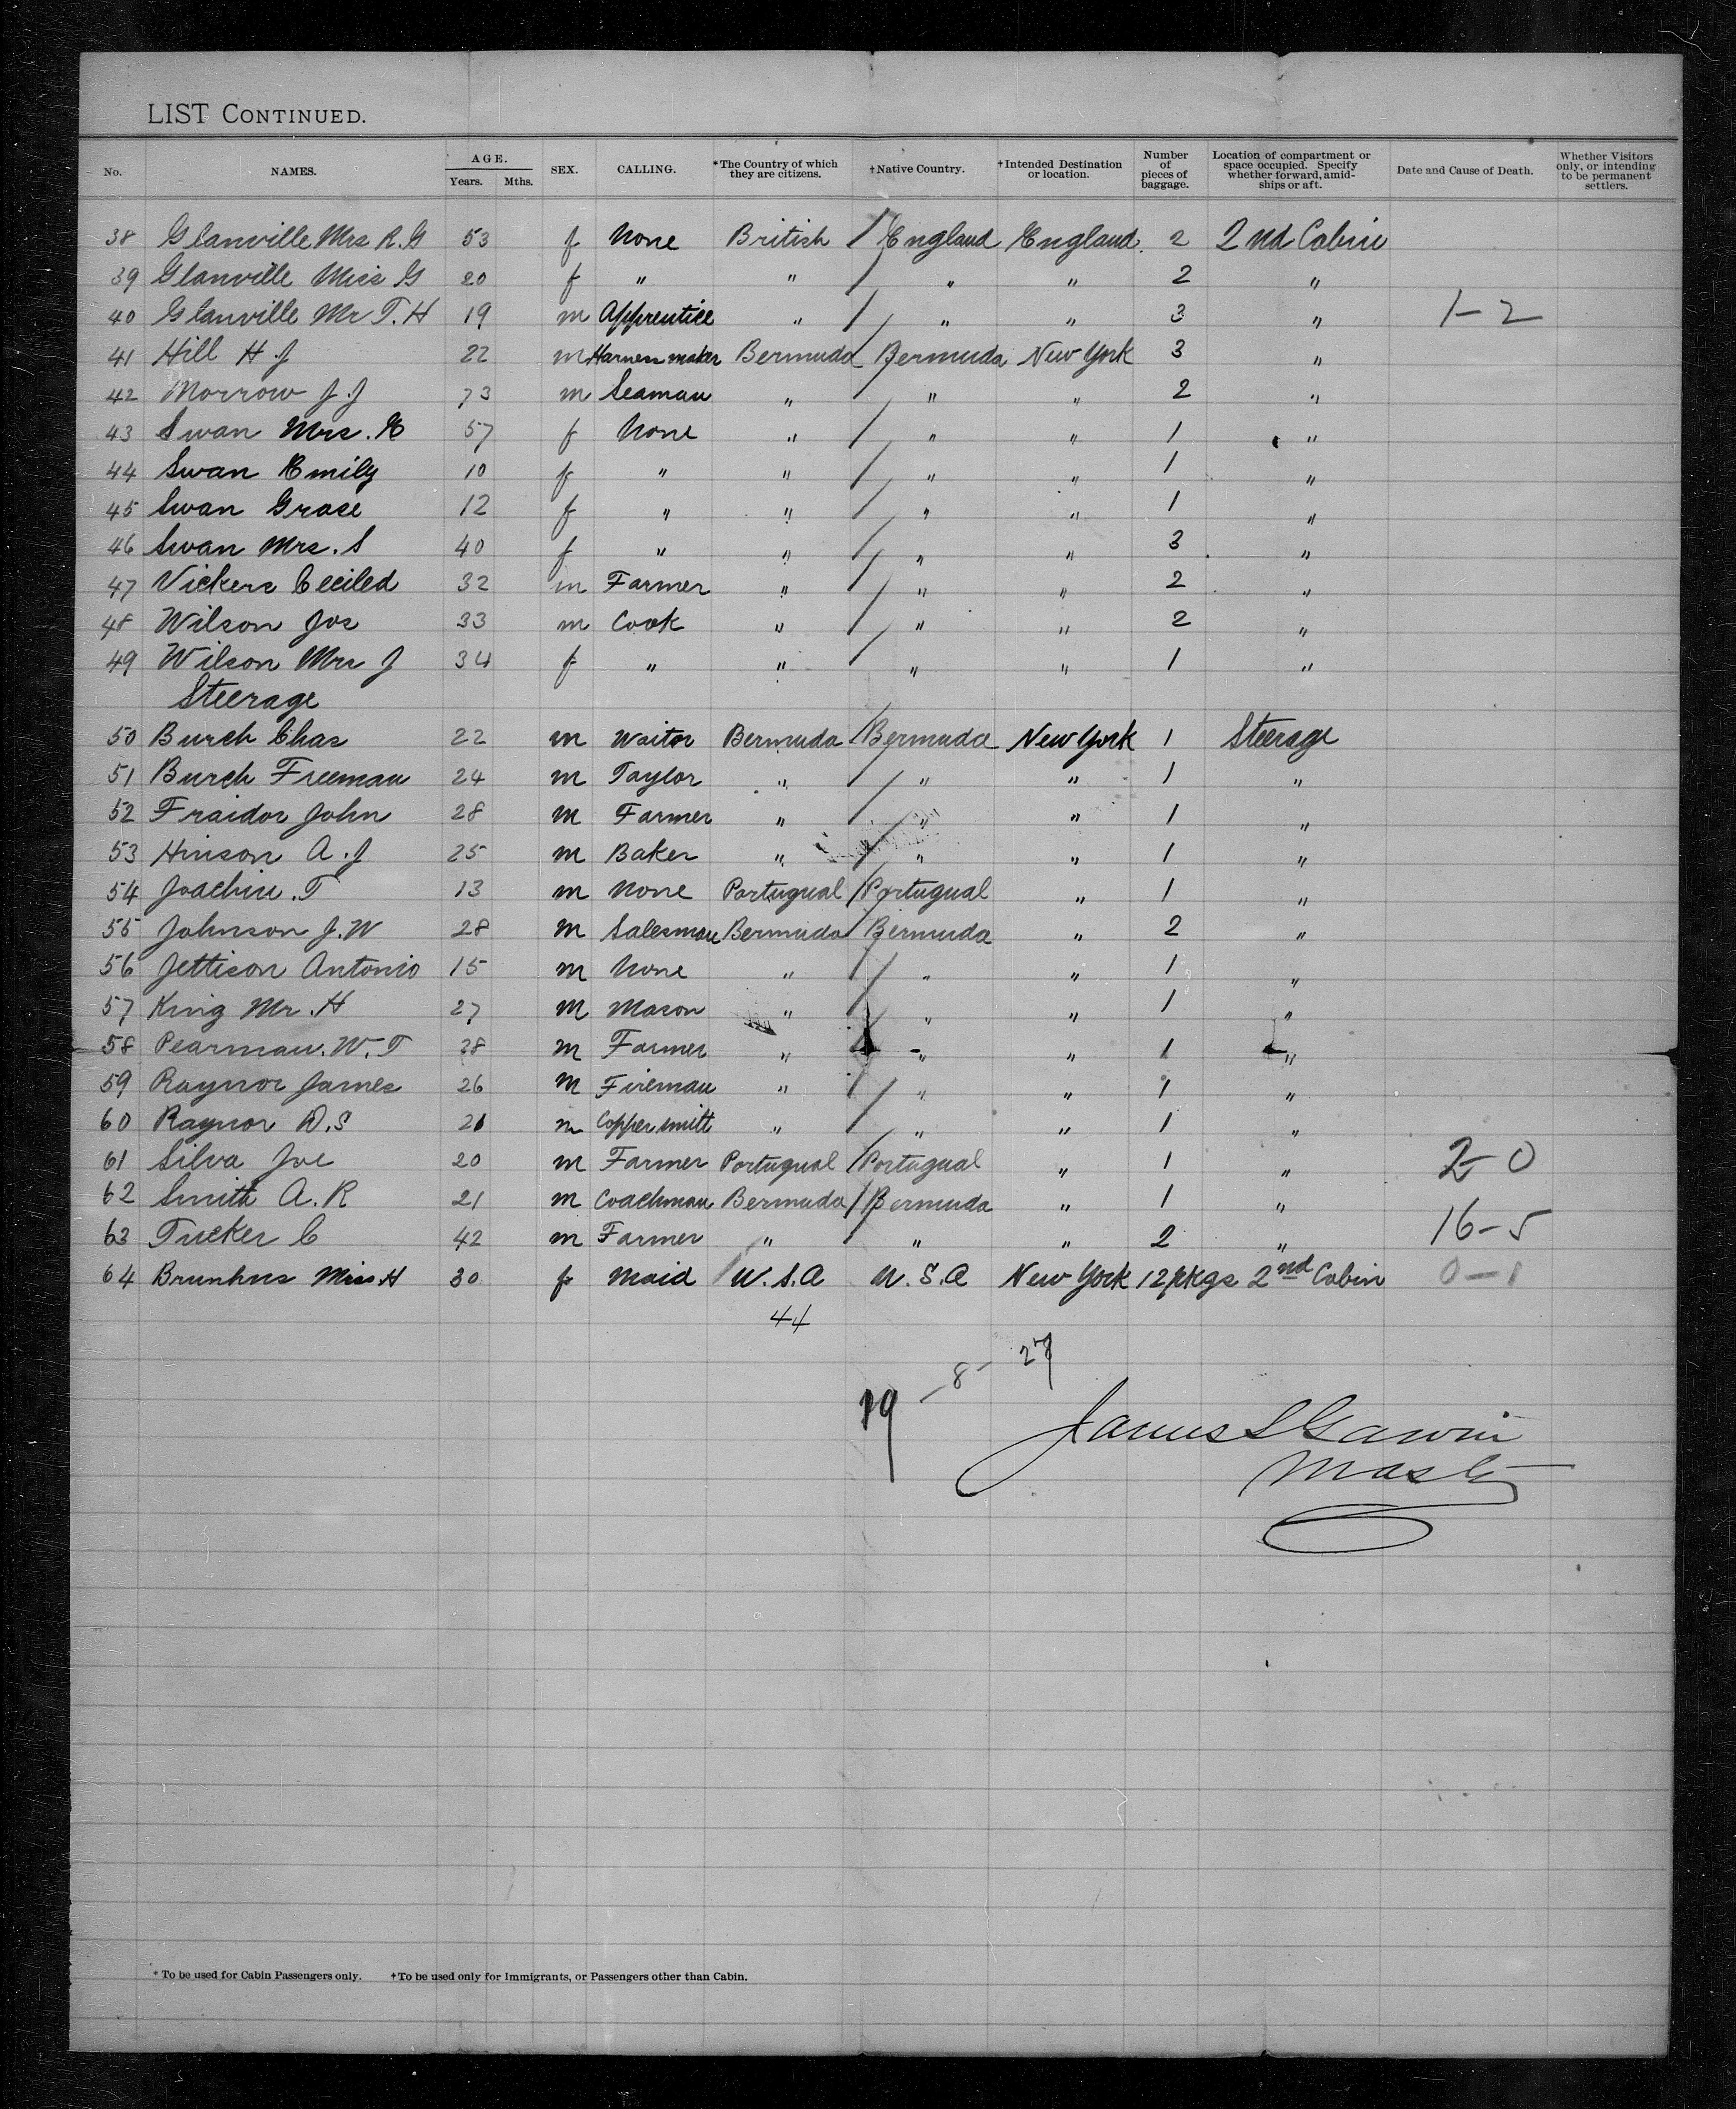 LIST CONTINUED.
No. NAMES. AGE. Years. Mths. SEX. CALLING. *The Country of which they are citizens. †Native Country. †Intended Destination or location. Number of pieces of baggage. Location of compartment or space occupied. Specify whether forward, amidships or aft. Date and Cause of Death. Whether Visitors only, or intending to be permanent settlers.
38 Glanville Mrs R.G 53 f None British / England England 2 2nd Cabin
39 Glanville Miss G 20 f " " / " " 2 "
40 Glanville Mr T.H 19 m Apprentice " / " " 3 " 1-2
41 Hill H.J 22 m Harness maker Bermuda / Bermuda New York 3 "
42 Morrow J.J 73 m Seaman " / " " 2 "
43 Swan Mrs. E 57 f None " / " " 1 "
44 Swan Emily 10 f " " / " " 1 "
45 Swan Grace 12 f " " / " " 1 "
46 Swan Mrs. S 40 f " " / " " 3 "
47 Vickers Ceciled 32 m Farmer " / " " 2 "
48 Wilson Jos 33 m Cook " / " " 2 "
49 Wilson Mrs J 34 f " " / " " 1 "
Steerage
50 Burch Chas 22 m Waitor Bermuda / Bermuda New York 1 Steerage
51 Burch Freeman 24 m Taylor " / " " 1 "
52 Fraidor John 28 m Farmer " / " " 1 "
53 Hinson A.J 25 m Baker " / " " 1 "
54 Joachin. T 13 m None Portugual / Portugual " 1 "
55 Johnson J.W 28 m Salesman Bermuda / Bermuda " 2 "
56 Jettison Antonio 15 m None " / " " 1 "
57 King Mr. H 27 m Mason " / " " 1 "
58 Pearman. W.T 38 m Farmer " " " 1 "
59 Raynor James 26 m Fireman " / " " 1 "
60 Raynor D.S 21 m Coppersmith " / " " 1 "
61 Silva Joe 20 m Farmer Portugual / Portugual " 1 " 2-0
62 Smith A.R 21 m Coachman Bermuda / Bermuda " 1 "
63 Tucker C 42 m Farmer " / " " 2 " 16-5
64 Brunhns Miss H 30 f Maid / U.S.A U.S.A New York 12 pkgs 2nd Cabin 0-1
44
19 - 8 - 27
James L Garvin
Master
* To be used for Cabin Passengers only. †To be used only for Immigrants, or Passengers other than Cabin.